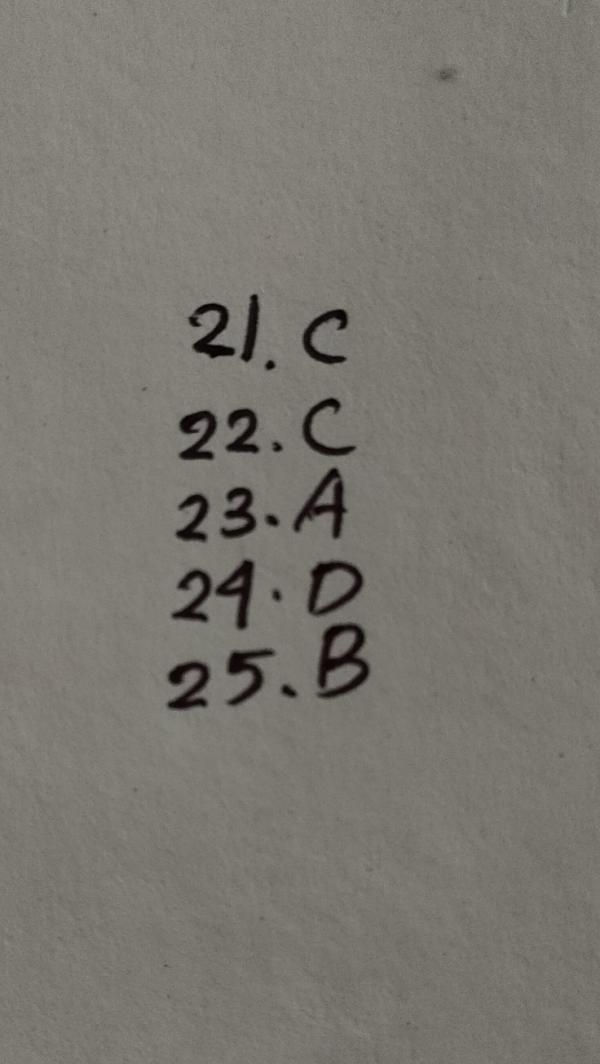 21. C
22. C
23. A
24. D
25. B